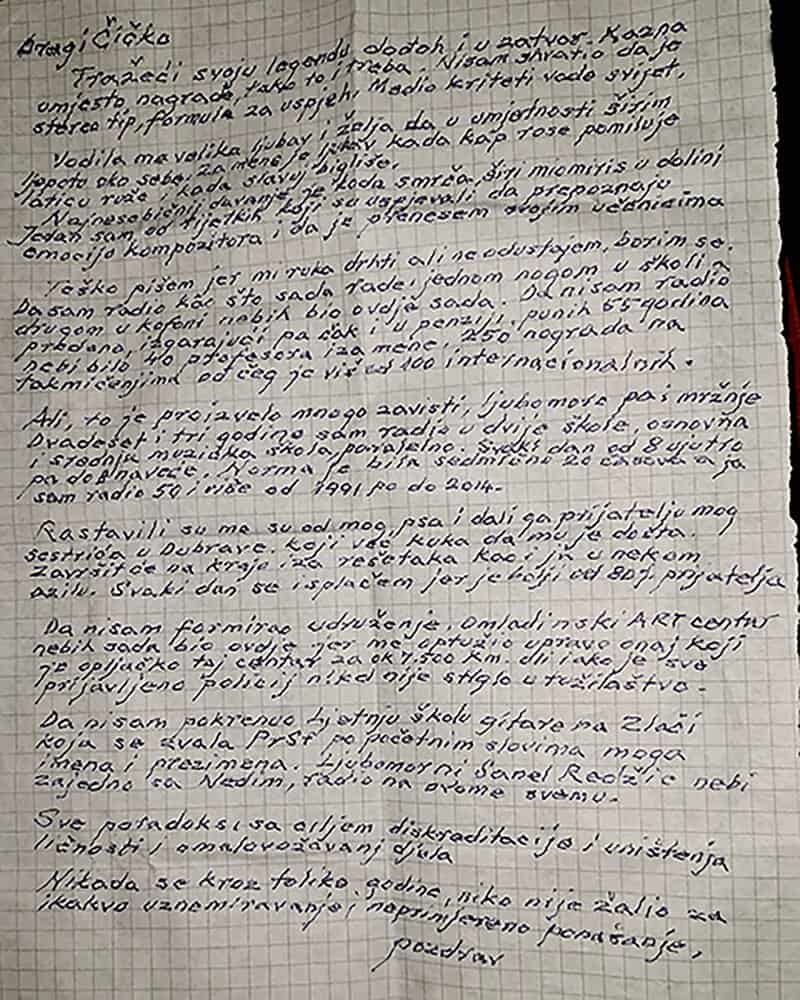 Dragi Čičko
Tražeći svoju legendu dođoh i u zatvor. Kazna
umjesto nagrade, tako to i treba. Nisam shvatio da je
stereo tip, formula za uspjeh. Medio kriteti vode svijet,
Vodila me velika ljubav i želja da u umjetnosti širim
ljepotu oko sebe. Za mene je ljubav kada kap rose pomiluje
laticu ruže i kada slavuj bigliše.
Najnesebičnij davanje je kada smrča širi miomiris u dolini
Jedan sam od rijetkih koji su uspjevali da prepoznaju
emociju kompozitora i da je prenesem svojim učenicima
Teško pišem jer mi ruka drhti ali ne odustajem, borim se.
Da sam radio kao što sada rade, jednom nogom u školi a
drugom u kafani nebih bio ovdje sada. Da nisam radio
predano, izgarajući pa čak i u penziji, punih 55 godina
nebi bilo 40 profesora iza mene, 250 nagrada na
takmičenjima od čeg je više od 100 internacionalnih.
Ali, to je proizvelo mnogo zavisti, ljubomore pa i mržnje
Dvadeset i tri godine sam radio u dvije škole, osnovna
i srednja muzička škola paralelno. Svaki dan od 8 ujutro
pa do 8 naveče. Norma je bila sedmično 20 časova a ja
sam radio 50 i više od 1991 po do 2014.
Rastavili su me su od mog psa i dali ga prijatelju mog
sestrića u Dubrave. Koji već kuka da mu je dosta.
Završit će na kraju iza rešetaka kao i ja u nekom
azilu. Svaki dan se isplačem jer je bolji od 80% prijatelja
Da nisam formirao udruženje. Omladinski ART centar
nebih sada bio ovdje jer me optužio upravo onaj koji
je opljačko taj centar za ok 7.500 km. Ali iako je sve
prijavljeno policij nikad nije stiglo u tužilaštvo.
Da nisam pokrenuo Ljetnju školu gitare na Zlači
koja se zvala PrSt po početnim slovima moga
imena i prezimena. Ljubomorni Sanel Redžić nebi
zajedno sa Nedim, radio na ovome svemu.
Sve paradoksi sa ciljem diskraditacije i uništenja
ličnosti i omalovožavanj djela
Nikada se kroz tolike godine, niko nije žalio za
ikakvo uznemiravanje i neprimjereno ponašanje,
pozdrav